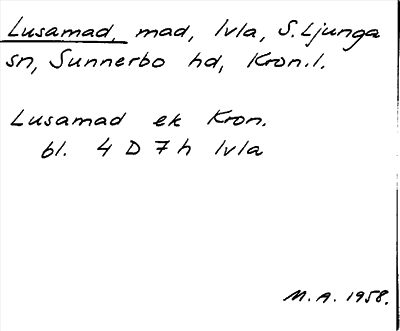 Lusamad, mad, Ivla, S. Ljunga
sn, Sunnerbo hd, Kron. l.
Lusamad ek Kron.
bl. 4 D 7 h Ivla
M. A. 1958.